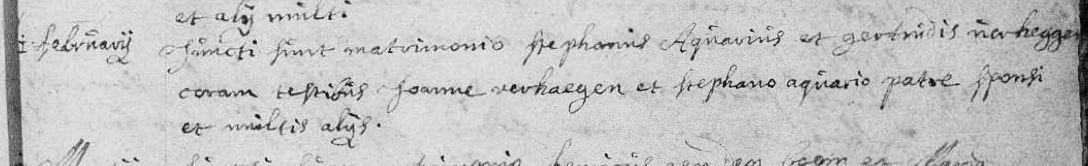 et alij multi
februarij Juncti sunt matrimonio stephanus Aquarius et gertrudis verheggen
coram testibus Joanne verhaegen et stephano aquario patre sponsi
et multis alijs.